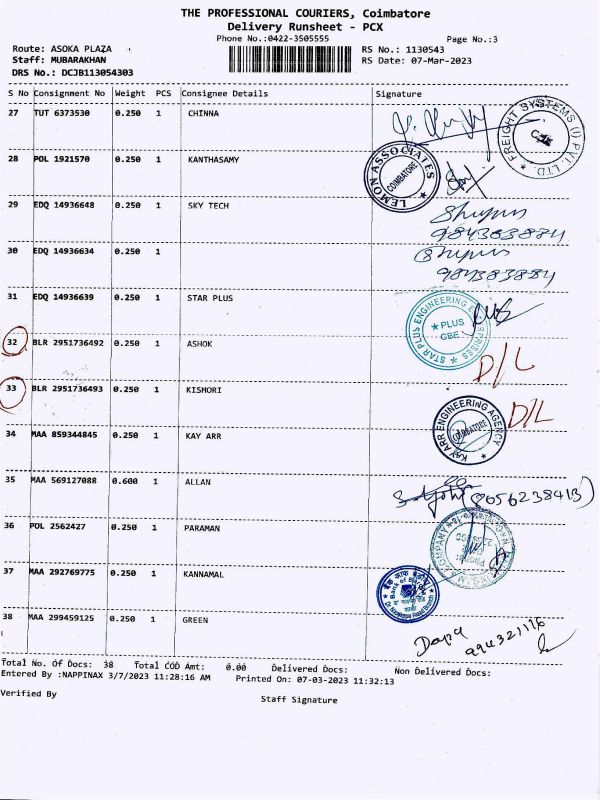 THE PROFESSIONAL COURIERS, Coimbatore
Delivery Runsheet - PCX
Phone No.:0422-3505555
Page No.:3
Route: ASOKA PLAZA
RS No.: 1130543
Staff: MUBARAKHAN
RS Date: 07-Mar-2023
DRS No.: DCJB113054303
S No Consignment No Weight PCS Consignee Details Signature
27 TUT 6373530 0.250 1 CHINNA
FREIGHT SYSTEMS (I) PVT. LTD.
28 POL 1921570 0.250 1 KANTHASAMY
LEMON ASSOCIATES COIMBATORE
29 EDQ 14936648 0.250 1 SKY TECH
30 EDQ 14936634 0.250 1
31 EDQ 14936639 0.250 1 STAR PLUS
STAR PLUS ENGINEERING ENTERPRISES PLUS CBE
32 BLR 2951736492 0.250 1 ASHOK D/L
33 BLR 2951736493 0.250 1 KISHORI D/L
34 MAA 859344845 0.250 1 KAY ARR
KAY ARR ENGINEERING AGENCY COIMBATORE
35 MAA 569127088 0.600 1 ALLAN (8056238413)
36 POL 2562427 0.250 1 PARAMAN
37 MAA 292769775 0.250 1 KANNAMAL
38 MAA 299459125 0.250 1 GREEN
Total No. Of Docs: 38 Total COD Amt: 0.00 Delivered Docs: Non Delivered Docs:
Entered By :NAPPINAX 3/7/2023 11:28:16 AM Printed On: 07-03-2023 11:32:13
Verified By
Staff Signature